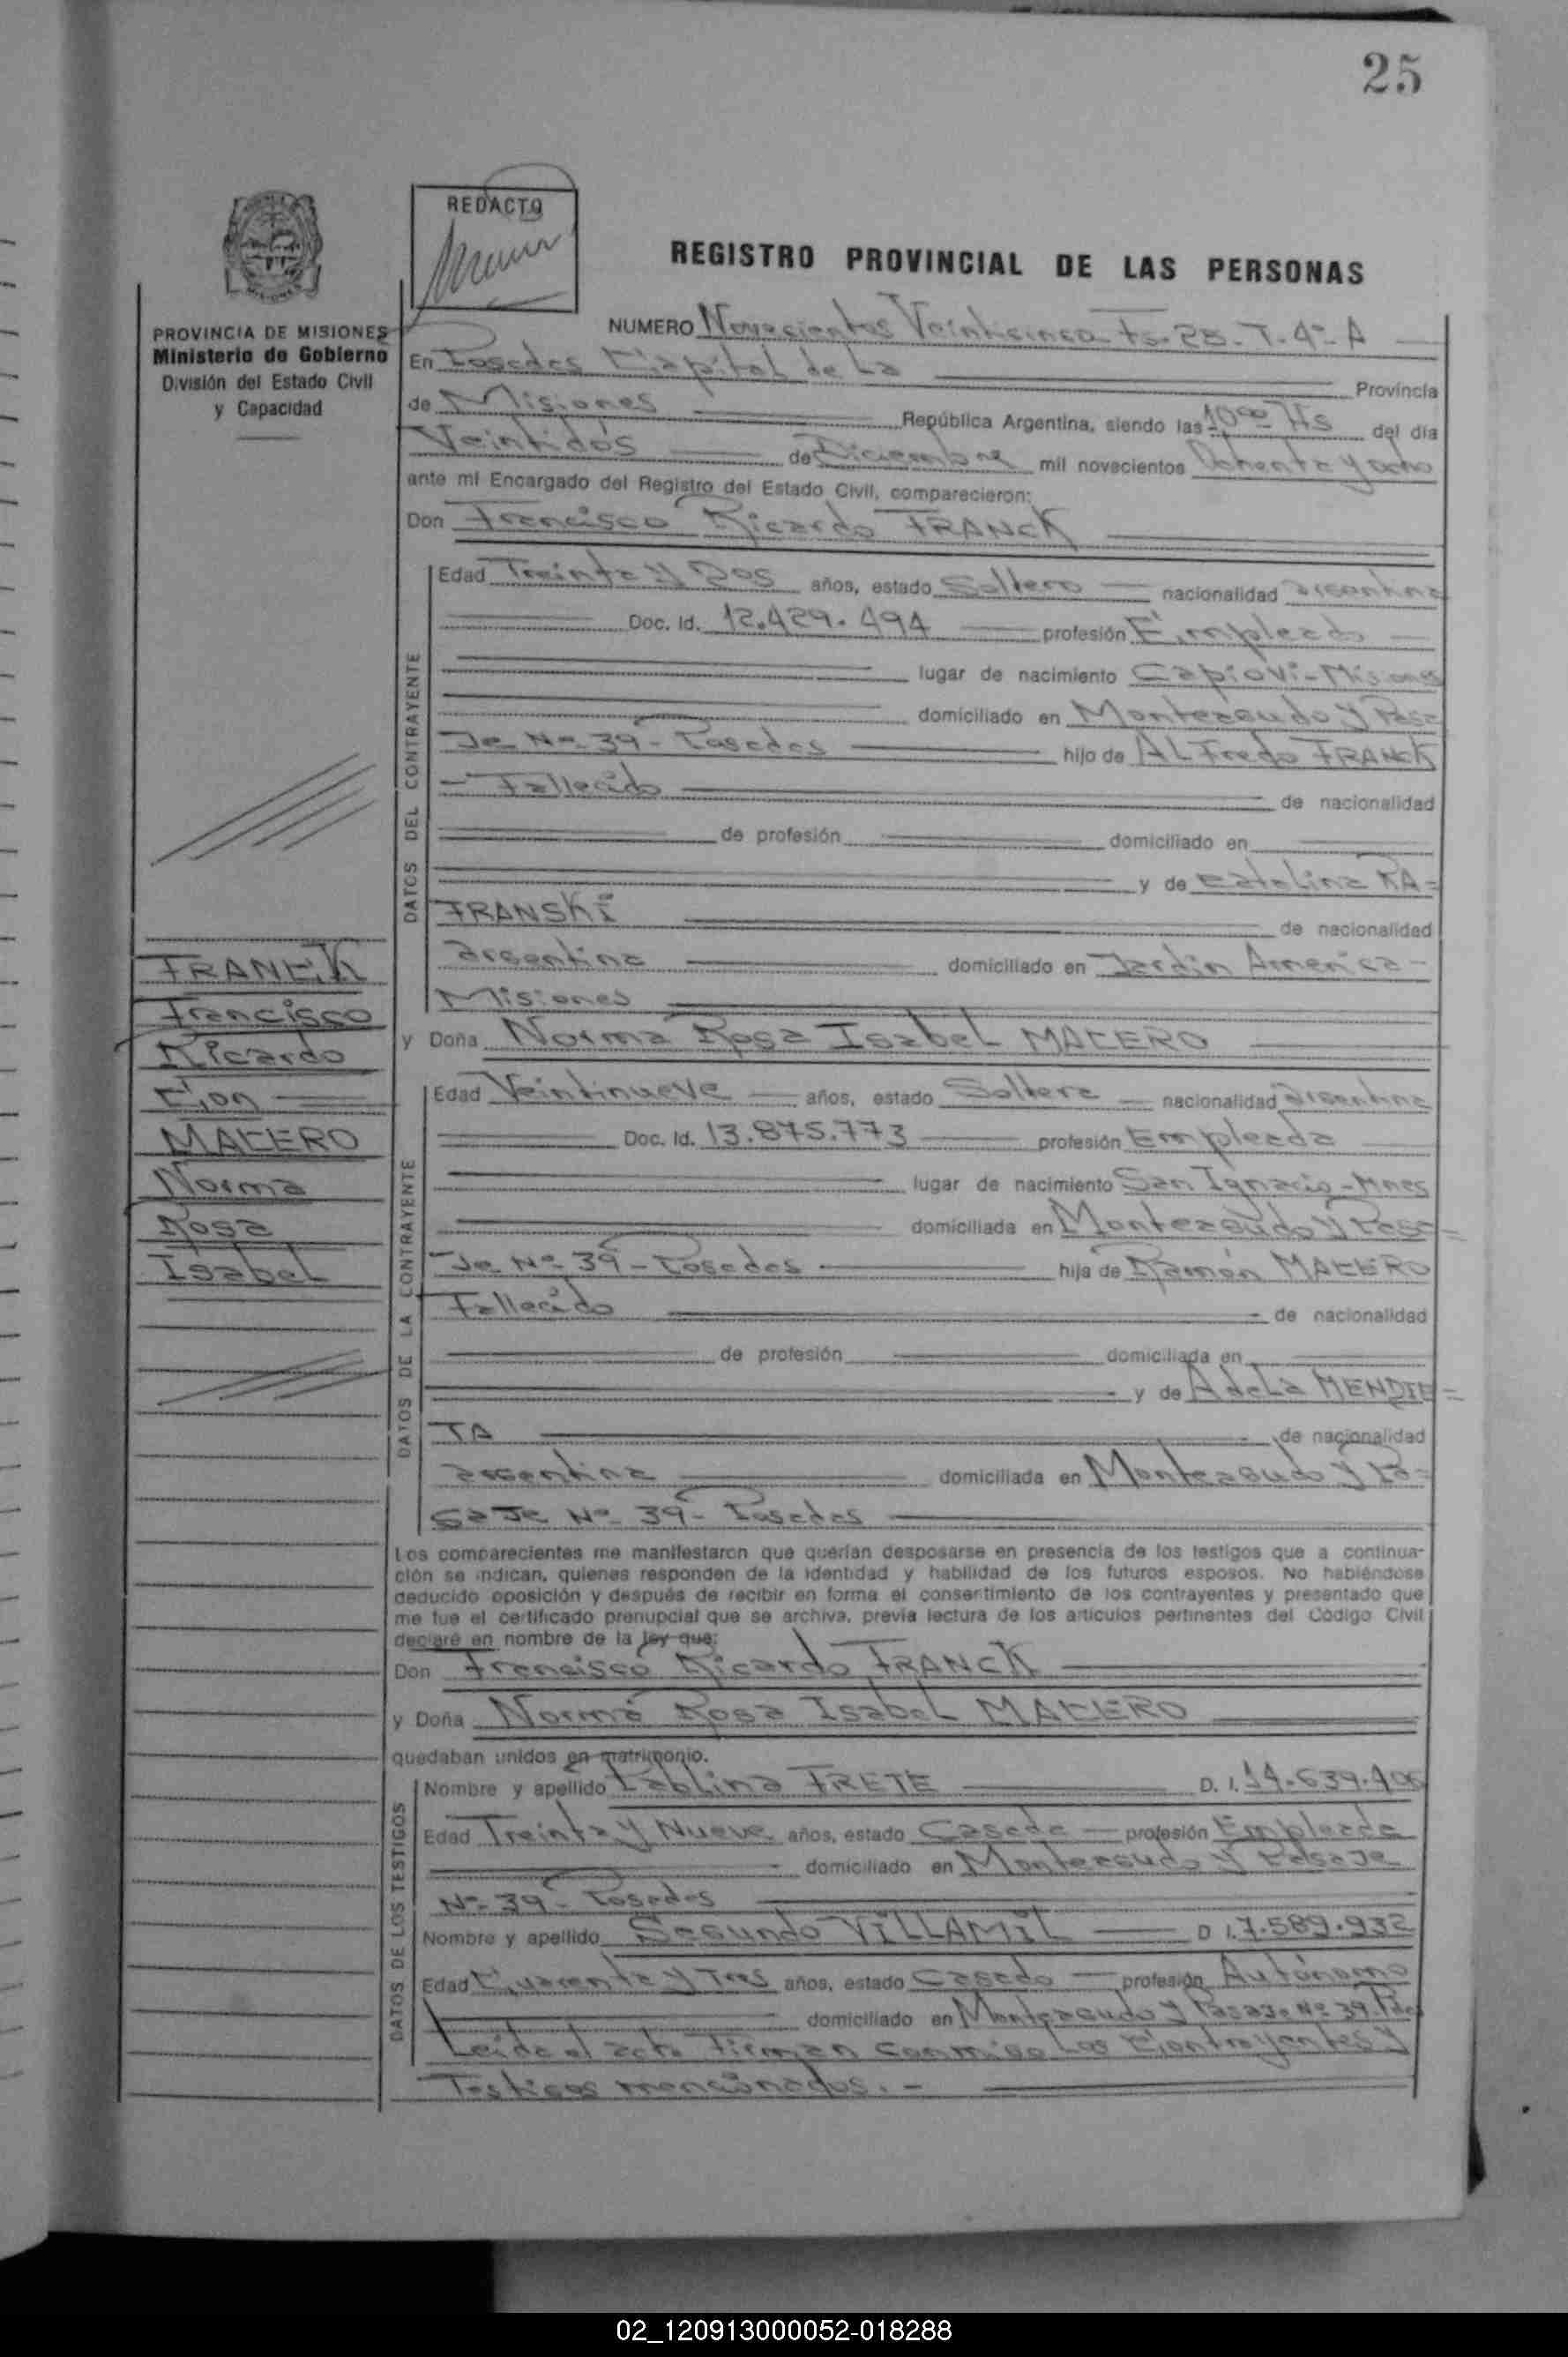 25
REDACTO
REGISTRO PROVINCIAL DE LAS PERSONAS
PROVINCIA DE MISIONES
Ministerio de Gobierno
División del Estado Civil
y Capacidad
NUMERO Novecientos Veinticinco Fs. 25. T. 4º A
En Posadas Capital de La Provincia
de Misiones República Argentina, siendo las 10 00 Hs del día
Veintidós de Diciembre mil novecientos Ochenta y ocho
ante mi Encargado del Registro del Estado Civil, comparecieron:
Don Francisco Ricardo FRANCK
DATOS DEL CONTRAYENTE
Edad Treinta y Dos años, estado Soltero nacionalidad argentina
Doc. Id. 12.429.494 profesión Empleado
lugar de nacimiento Capioví-Misiones
domiciliado en Monteagudo y Pasa
Je Nº 39 - Posadas hijo de ALFredo FRANCK
- Fallecido de nacionalidad
de profesión domiciliado en
y de Catalina KA=
FRANSKI de nacionalidad
argentina domiciliado en Jardín America -
Misiones
FRANCK
Francisco
Ricardo
Con
MACERO
Norma
Rosa
Isabel
y Doña Norma Rosa Isabel MACERO
DATOS DE LA CONTRAYENTE
Edad Veintinueve años, estado Soltera nacionalidad argentina
Doc. Id. 13.875.773 profesión Empleada
lugar de nacimiento San Ignacio-Mnes
domiciliada en Monteagudo y Pasa=
Je Nº 39 - Posadas hija de Ramón MACERO
Fallecido de nacionalidad
de profesión domiciliada en
y de AdeLa MENDIE=
TA de nacionalidad
argentina domiciliada en Monteagudo y Pa=
saJe Nº 39 - Posadas
Los comparecientes me manifestaron que querían desposarse en presencia de los testigos que a continua-
ción se indican, quienes responden de la identidad y habilidad de los futuros esposos. No habiéndose
deducido oposición y después de recibir en forma el consentimiento de los contrayentes y presentado que
me fue el certificado prenupcial que se archiva, previa lectura de los artículos pertinentes del Código Civil
declaré en nombre de la ley que:
Don Francisco Ricardo FRANCK
y Doña Norma Rosa Isabel MACERO
quedaban unidos en matrimonio.
DATOS DE LOS TESTIGOS
Nombre y apellido Pablina FRETE D. I. 14.639.406
Edad Treinta y Nueve años, estado Casada profesión Empleada
domiciliado en Monteagudo y Pasaje
Nº 39 - Posadas
Nombre y apellido Segundo VILLAMIL D I. 7.589.932
Edad Cuarenta y Tres años, estado Casado profesión Autónomo
domiciliado en Monteagudo y Pasaje Nº 39. Pdas
Leída el acta Firman conmigo Los Contrayentes y
Testigos mencionados. -
02_120913000052-018288